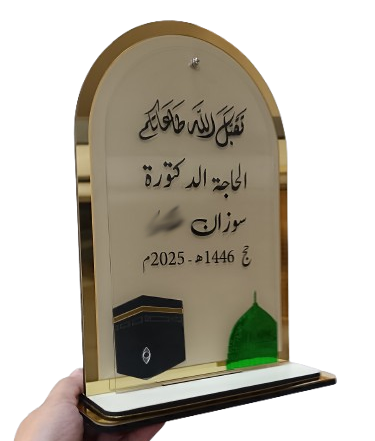 تقبل الله طاعاتكم
الحاجة الدكتورة
سوزان
حج 1446هـ - 2025م